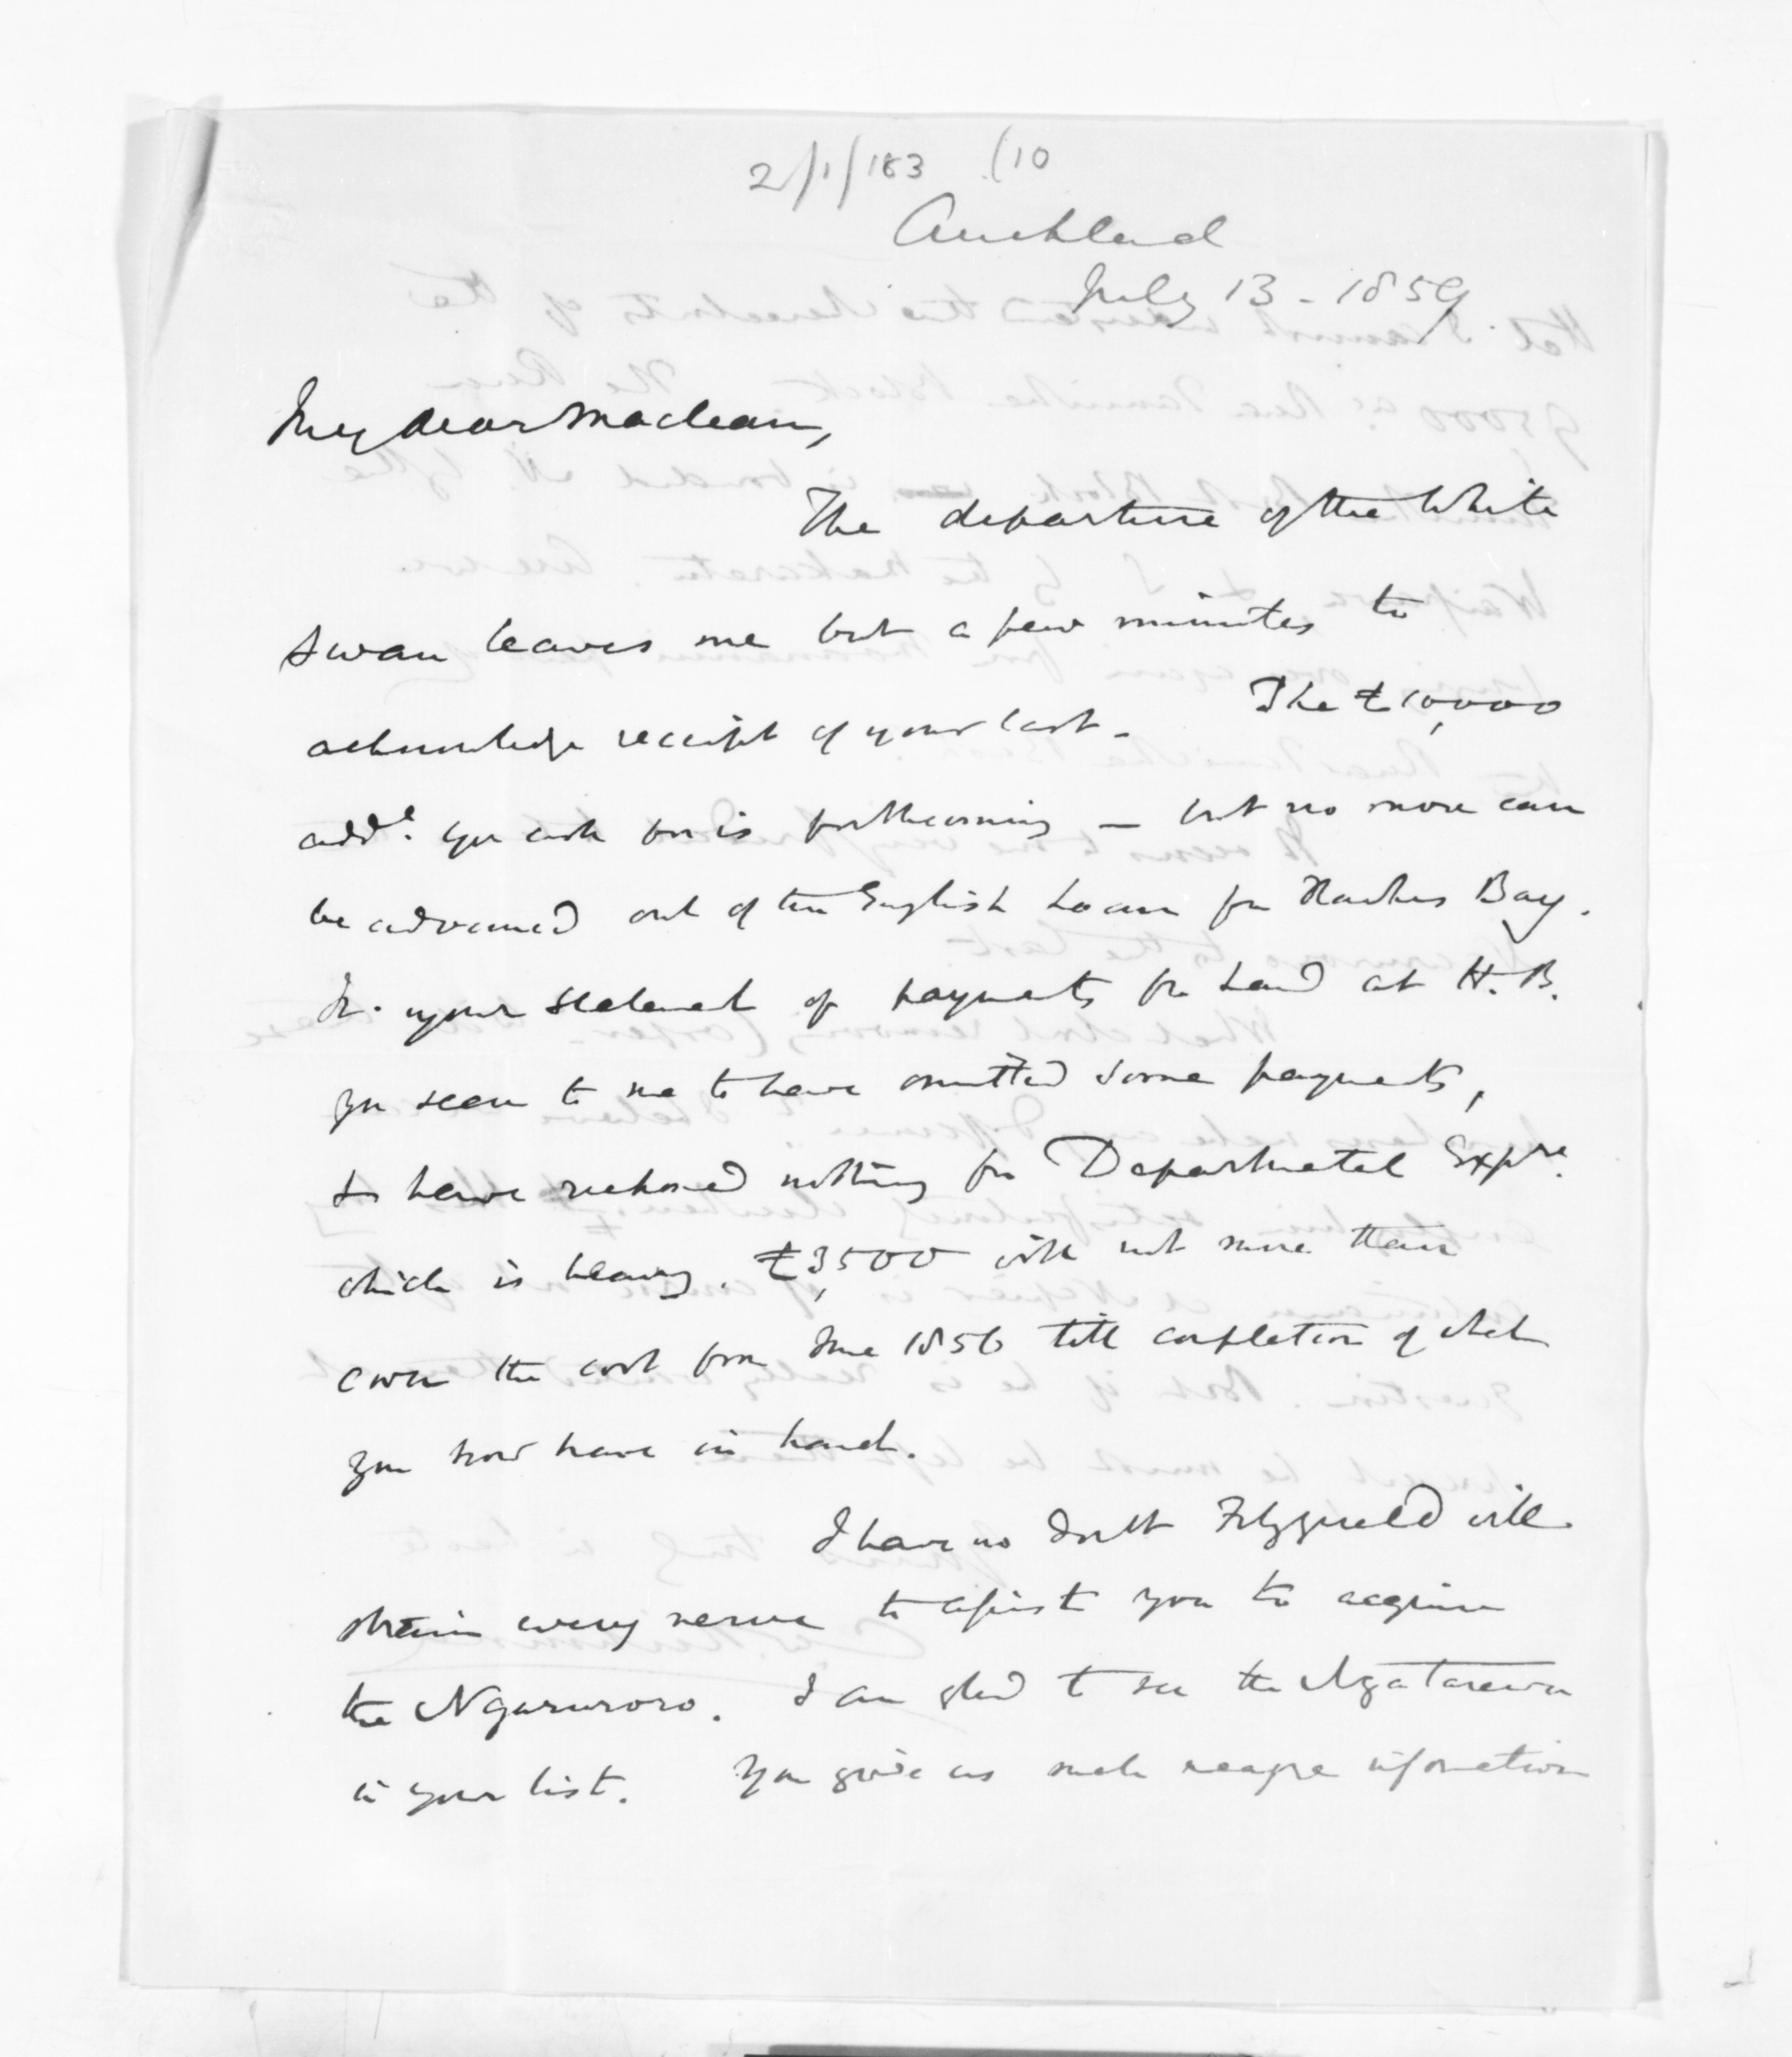 2/1/183 (10
Auckland
July 13 - 1859
My dear Maclean,
The departure of the White
Swan leaves me but a few minutes to
acknowledge receipt of your last - The £10,000
addl. you ask for is forthcoming - but no more can
be advanced out of the English Loan for Hawkes Bay.
In your statement of payments for Land at H. B.
you seem to me to have omitted some payments,
& to have reckoned nothing for Departmental Expre.
which is heavy. £3,500 will not more than
cover the cost from June 1856 till completion of what
you now have in hand.
I have no doubt Fitzgerald will
strain every nerve to assist you to acquire
the Ngaruroro. I am glad to see the Ngatarawa
in your list. You give us such meagre information